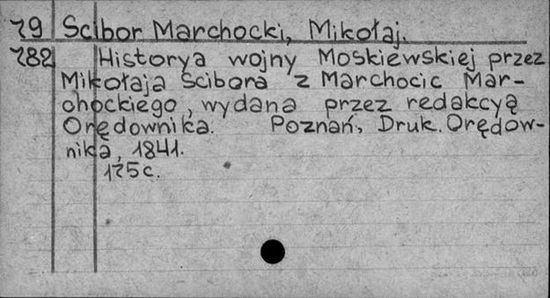 79 Scibor Marchocki, Mikołaj.
782 Historya wojny Moskiewskiej przez
Mikołaja Scibora z Marchocic Mar-
chockiego, wydana przez redakcyą
Orędownika. Poznań, Druk. Orędow-
nika, 1841.
175 c.